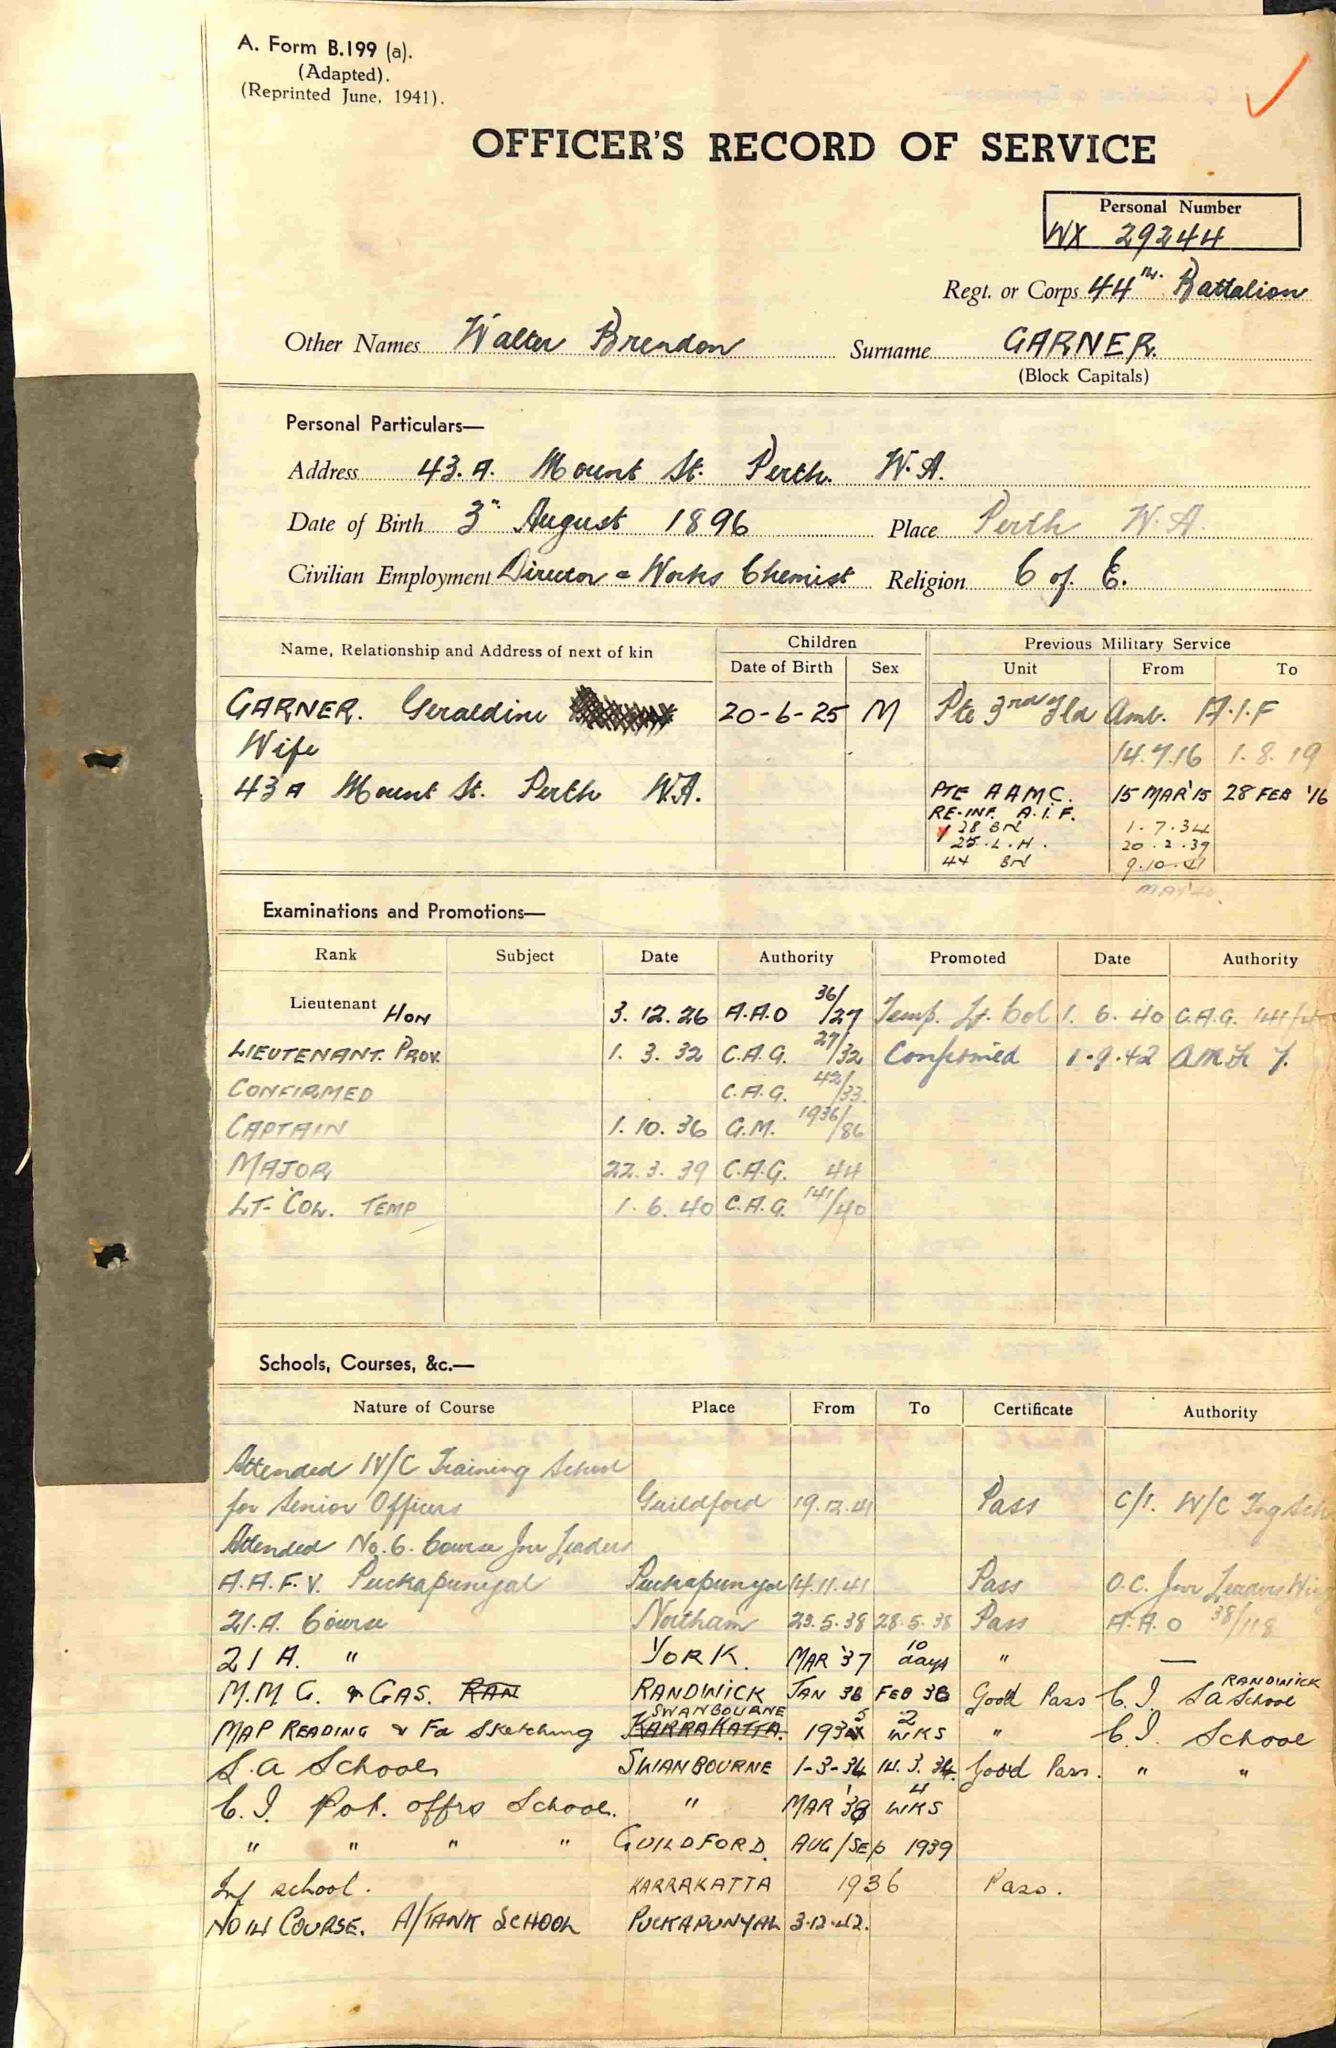 A. Form B.199 (a).
(Adapted).
(Reprinted June, 1941).
OFFICER'S RECORD OF SERVICE
Personal Number
WX 29244
Regt. or Corps 44th. Battalion
Other Names Walter Brendon Surname GARNER.
(Block Capitals)
Personal Particulars—
Address 43.A. Mount St. Perth. W.A.
Date of Birth 3" August 1896 Place Perth W.A.
Civilian Employment Director & Works Chemist Religion C of E.
Name, Relationship and Address of next of kin Children Previous Military Service
Date of Birth Sex Unit From To
GARNER. Geraldine 20-6-25 M Pte 3rd Fld Amb. A.I.F
Wife 14.7.16 1.8.19
43A Mount St. Perth W.A. PTE AAMC. 15 MAR '15 28 FEB '16
RE-INF. A.I.F.
28 BN 1.7.34
25.L.H. 20.2.39
44 BN 9.10.41
Examinations and Promotions—
Rank Subject Date Authority Promoted Date Authority
Lieutenant HON 3.12.26 A.A.O 36/27 Temp. Lt. Col 1.6.40 C.A.G. 141/40
LIEUTENANT. PROV. 1.3.32 C.A.G. 27/32 Confirmed 1.9.42
CONFIRMED C.A.G. 42/33.
CAPTAIN 1.10.36 G.M. 1936/86
MAJOR 22.3.39 C.A.G. 44
LT-COL. TEMP 1.6.40 C.A.G. 141/40
Schools, Courses, &c.—
Nature of Course Place From To Certificate Authority
Attended W/C Training School
for Senior Officers Guildford 19.12.41 Pass C/I. W/C Tng Sch
Attended No.6. Course Jnr Leaders
A.A.F.V. Puckapunyal Puckapunyal 14.11.41 Pass O.C. Jnr Leaders Wing
21.A. Course Northam 23.5.38 28.5.38 Pass A.A.O 38/118
21 A. " YORK. MAR '37 10 days " —
M.M.G. & GAS. RAN RANDWICK JAN 36 FEB 36 Good Pass C.I. SA School RANDWICK
MAP READING & Fd Sketching KARRAKATTA. SWANBOURNE 1935 2 WKS " C.I. School
S.A School SWANBOURNE 1-3-34 14.3.34. Good Pass. " "
C.I. Pot. offrs School. " MAR '38 4 WKS
" " " " GUILDFORD. AUG/SEP 1939
Inf school. KARRAKATTA 1936 Pass.
NO 14 COURSE. A/TANK SCHOOL PUCKAPUNYAL 3.12.42.